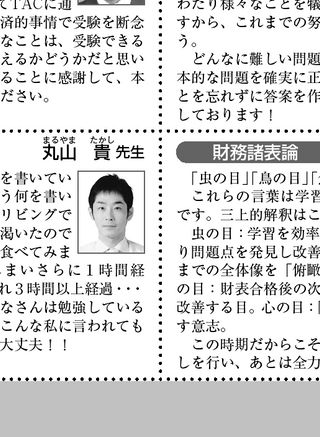 てTACに通
済的事情で受験を断念
なことは、受験できる
えるかどうかだと思い
ることに感謝して、本
ださい。
わたり様々なことを犠
すから、これまでの努
う。
どんなに難しい問題
本的な問題を確実に正
とを忘れずに答案を作
しております！
まるやま たかし
丸山 貴 先生
を書いてい
う何を書い
リビングで
渇いたので
食べてみま
まいさらに１時間経
れ３時間以上経過・・・
なさんは勉強している
こんな私に言われても
大丈夫！！
財務諸表論
「虫の目」「鳥の目」「
これらの言葉は学習
です。三上的解釈はこ
虫の目：学習を効率
り問題点を発見し改善
までの全体像を「俯瞰
の目：財表合格後の次
改善する目。心の目：
す意志。
この時期だからこそ
しを行い、あとは全力